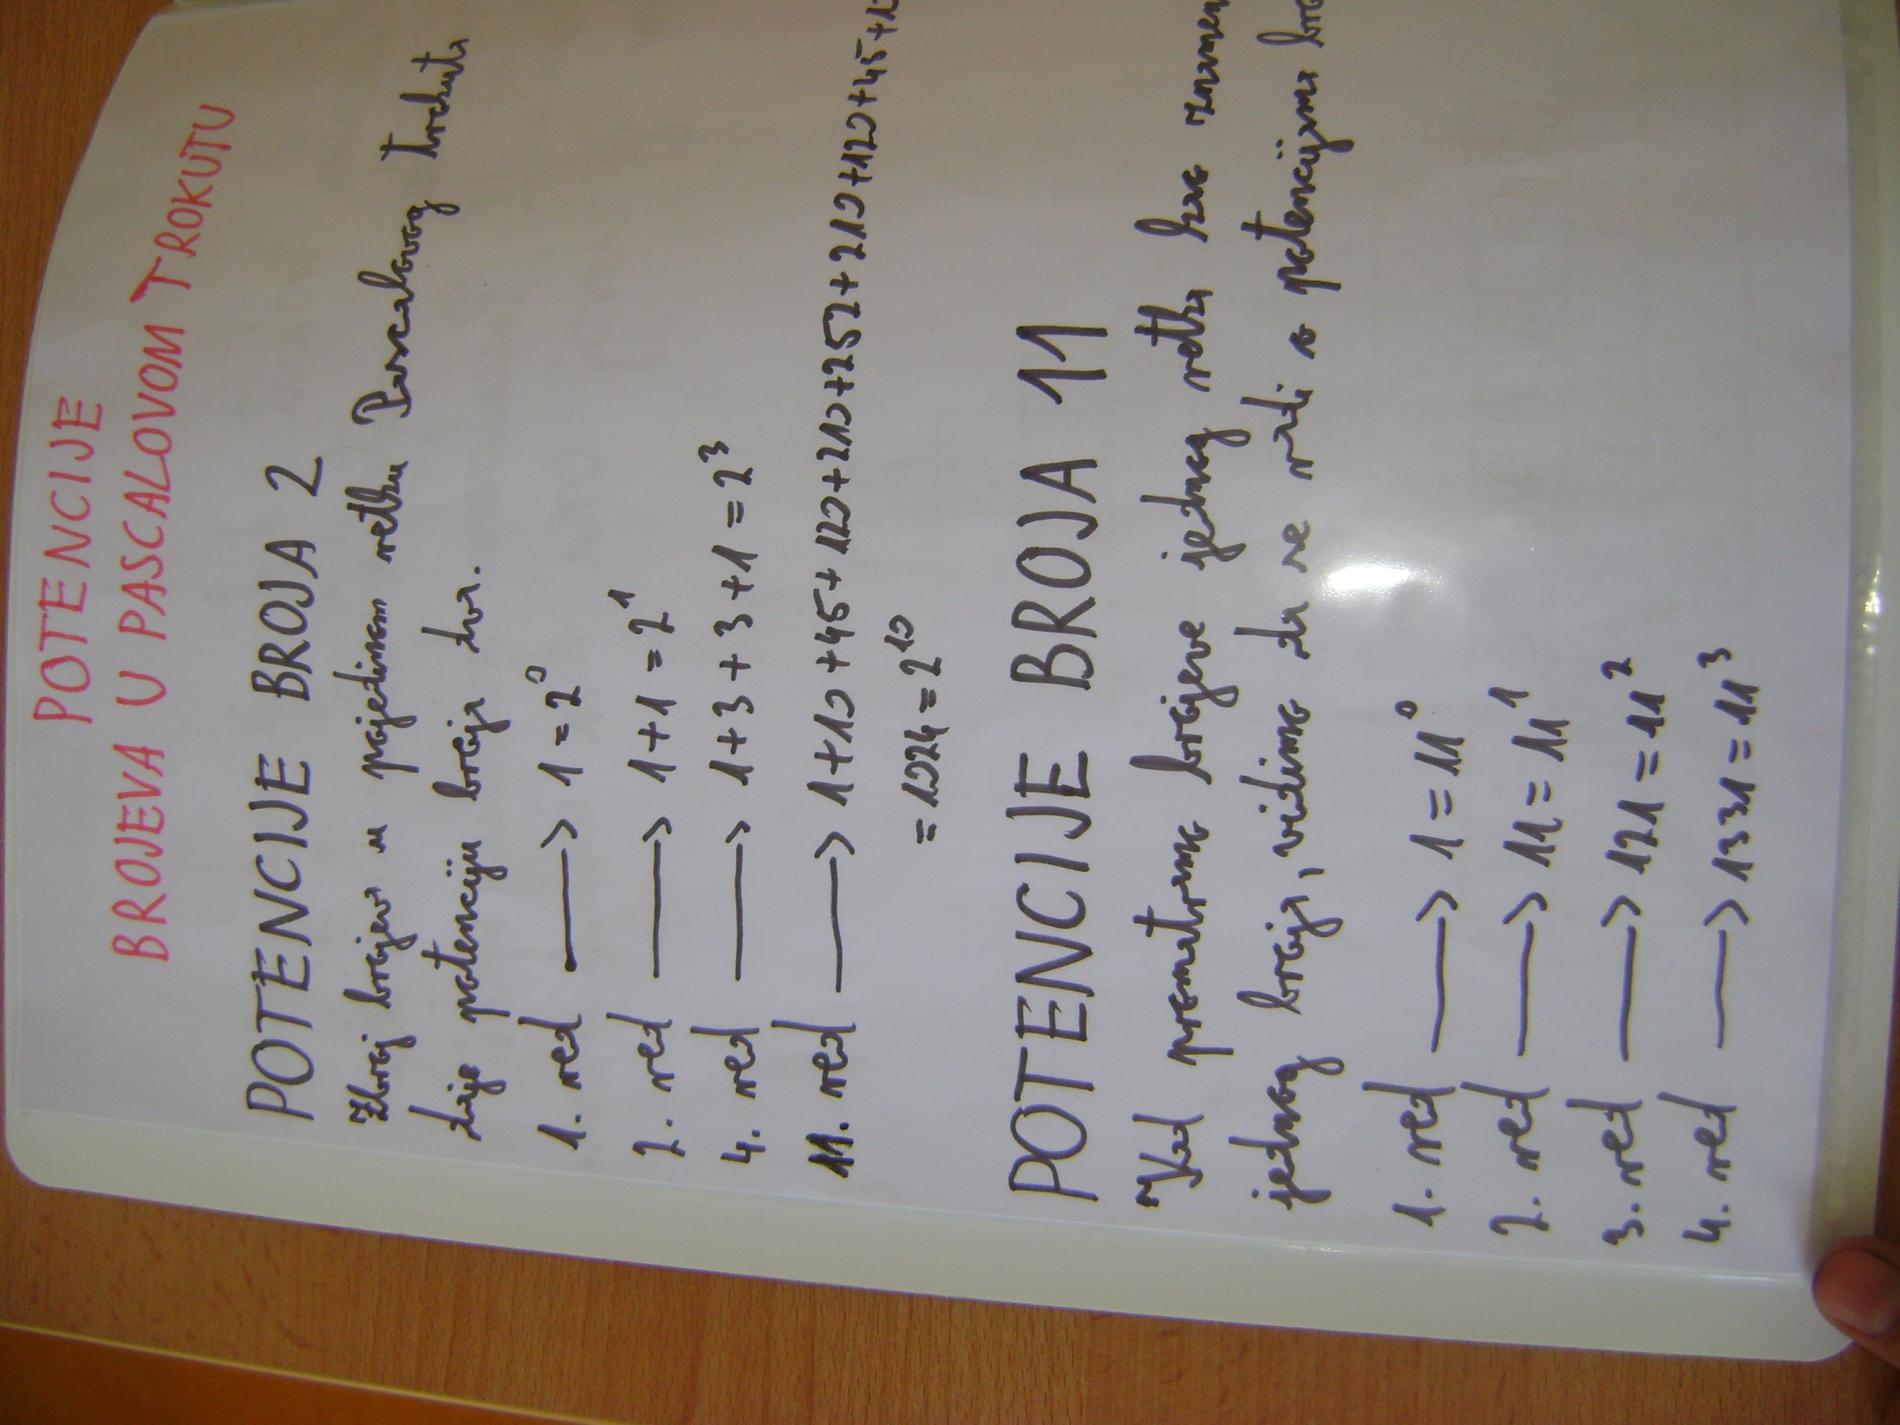 POTENCIJE
BROJEVA U PASCALOVOM TROKUTU
POTENCIJE BROJA 2
Zbroj brojeva u pojedinom retku Pascalovog trokuta
daje potenciju broja dva.
1. red → 1 = 2⁰
2. red → 1+1 = 2¹
4. red → 1+3+3+1 = 2³
11. red → 1+10+45+120+210+252+210+120+45+1
= 1024 = 2¹⁰
POTENCIJE BROJA 11
Kad promatramo brojeve jednog retka kao
jednog broja, vidimo da se radi o potencijama
1. red → 1 = 11⁰
2. red → 11 = 11¹
3. red → 121 = 11²
4. red → 1331 = 11³